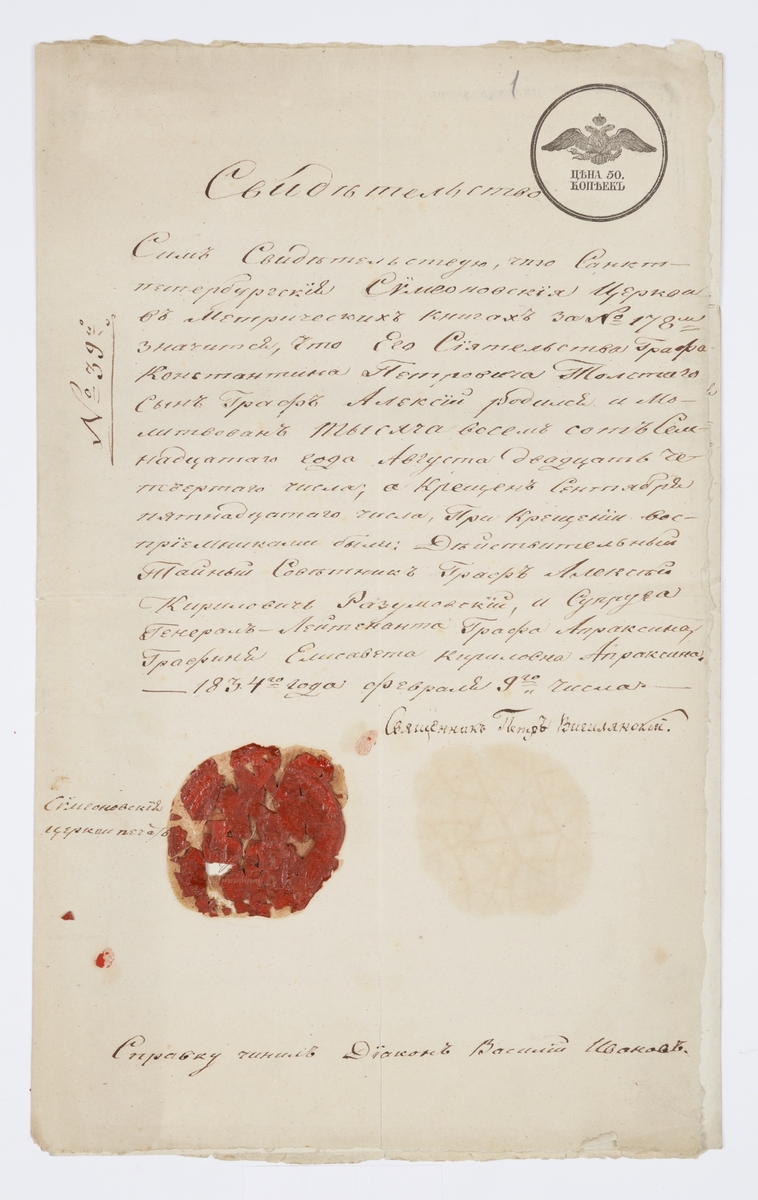 1
ЦѢНА 50.
КОПѢЕКЪ
Свидѣтельство
№ 39й
Симъ Свидѣтельствую, что Санкт-
петербургскія Сѵмеоновскія Церкви
въ Метрическихъ книгахъ за № 178м
значится, что Его Сіятельства Графа
Константина Петровича Толстаго
сынъ Графъ Алексій родился и Мо-
литвованъ тысяча восемъ сотъ Сем-
надцатаго года Августа двадцать че-
твертаго числа, а Крещенъ Сентября
пятнадцатаго числа, При Крещеніи вос-
пріемниками были: Дѣйствительный
Тайный Совѣтникъ Графъ Алексѣй
Кириловичь Разумовскій, и Супруга
Генералъ-Лейтенанта Графа Апраксина,
Графиня Елисавета Кириловна Апраксина.
— 1834го года февраля 9го числа —
Священникъ Петръ Вигилянскій.
Сѵмеоновскія
церкви печать
Справку чинилъ Діаконъ Василій Ивановъ.